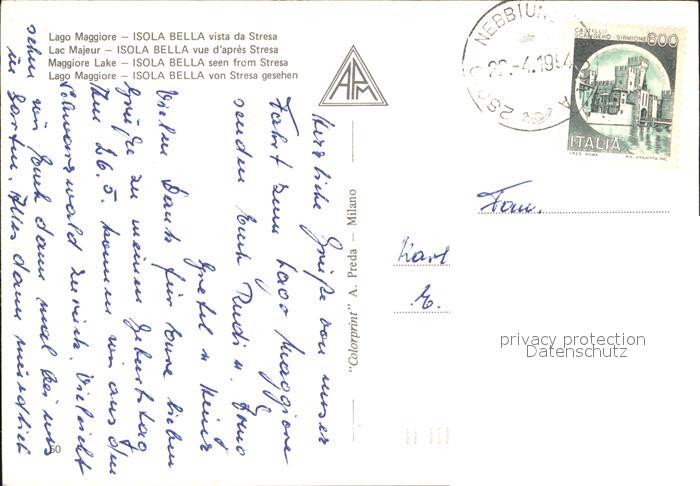 Lago Maggiore – ISOLA BELLA vista da Stresa
Lac Majeur – ISOLA BELLA vue d'après Stresa
Maggiore Lake – ISOLA BELLA seen from Stresa
Lago Maggiore – ISOLA BELLA von Stresa gesehen
APM
NEBBIUNO
280
-4.1994
CASTELLO
SCALIGERO - SIRMIONE
600
ITALIA
I.P.Z.S. ROMA
Herzliche Grüße von unser
Fahrt zum Lago Maggiore
senden Euch Rudi u. Erna
Gretel u Heinz
Vielen Dank für Eure lieben
Grüße zu meinem Geburtstag
Am 26.5. kommen wir aus dem
Schwarzwald zurück. Vielleicht
sehen wir Euch dann mal bei uns
im Garten. Alles dann mündlich
"Colorprint" A. Preda – Milano
Fam.
Karl
E.
privacy protection
Datenschutz
50